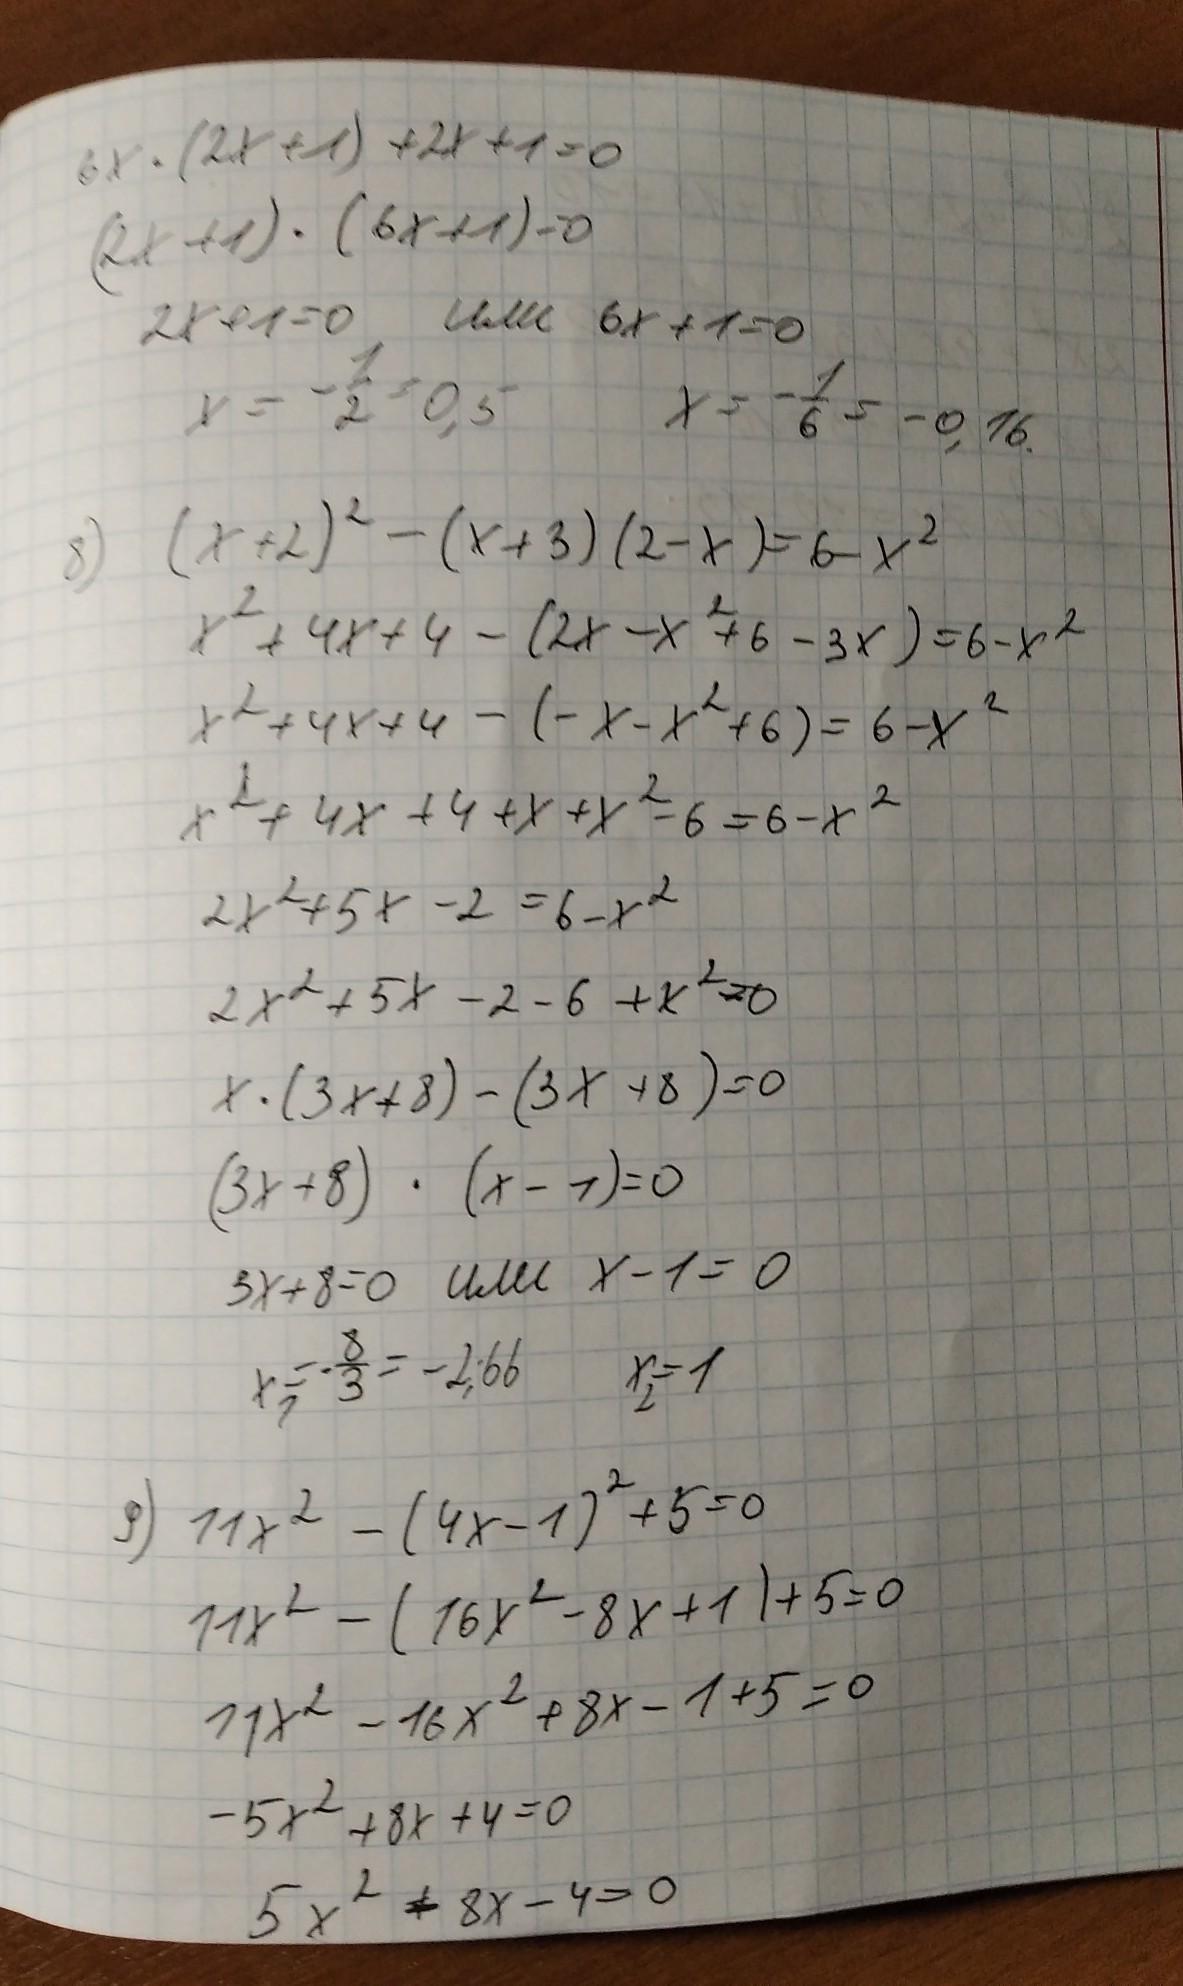 6x · (2x+1) +2x+1=0
(2x+1) · (6x+1)=0
2x+1=0 или 6x+1=0
x = -1/2 = 0,5 x = -1/6 = -0,16.
8) (x+2)² - (x+3)(2-x)=6-x²
x²+4x+4-(2x-x²+6-3x)=6-x²
x²+4x+4-(-x-x²+6)=6-x²
x²+4x+4+x+x²-6=6-x²
2x²+5x-2=6-x²
2x²+5x-2-6+x²=0
x·(3x+8)-(3x+8)=0
(3x+8) · (x-1)=0
3x+8=0 или x-1=0
x₁=-8/3=-2,66 x₂=1
9) 11x²-(4x-1)²+5=0
11x²-(16x²-8x+1)+5=0
11x²-16x²+8x-1+5=0
-5x²+8x+4=0
5x²-8x-4=0